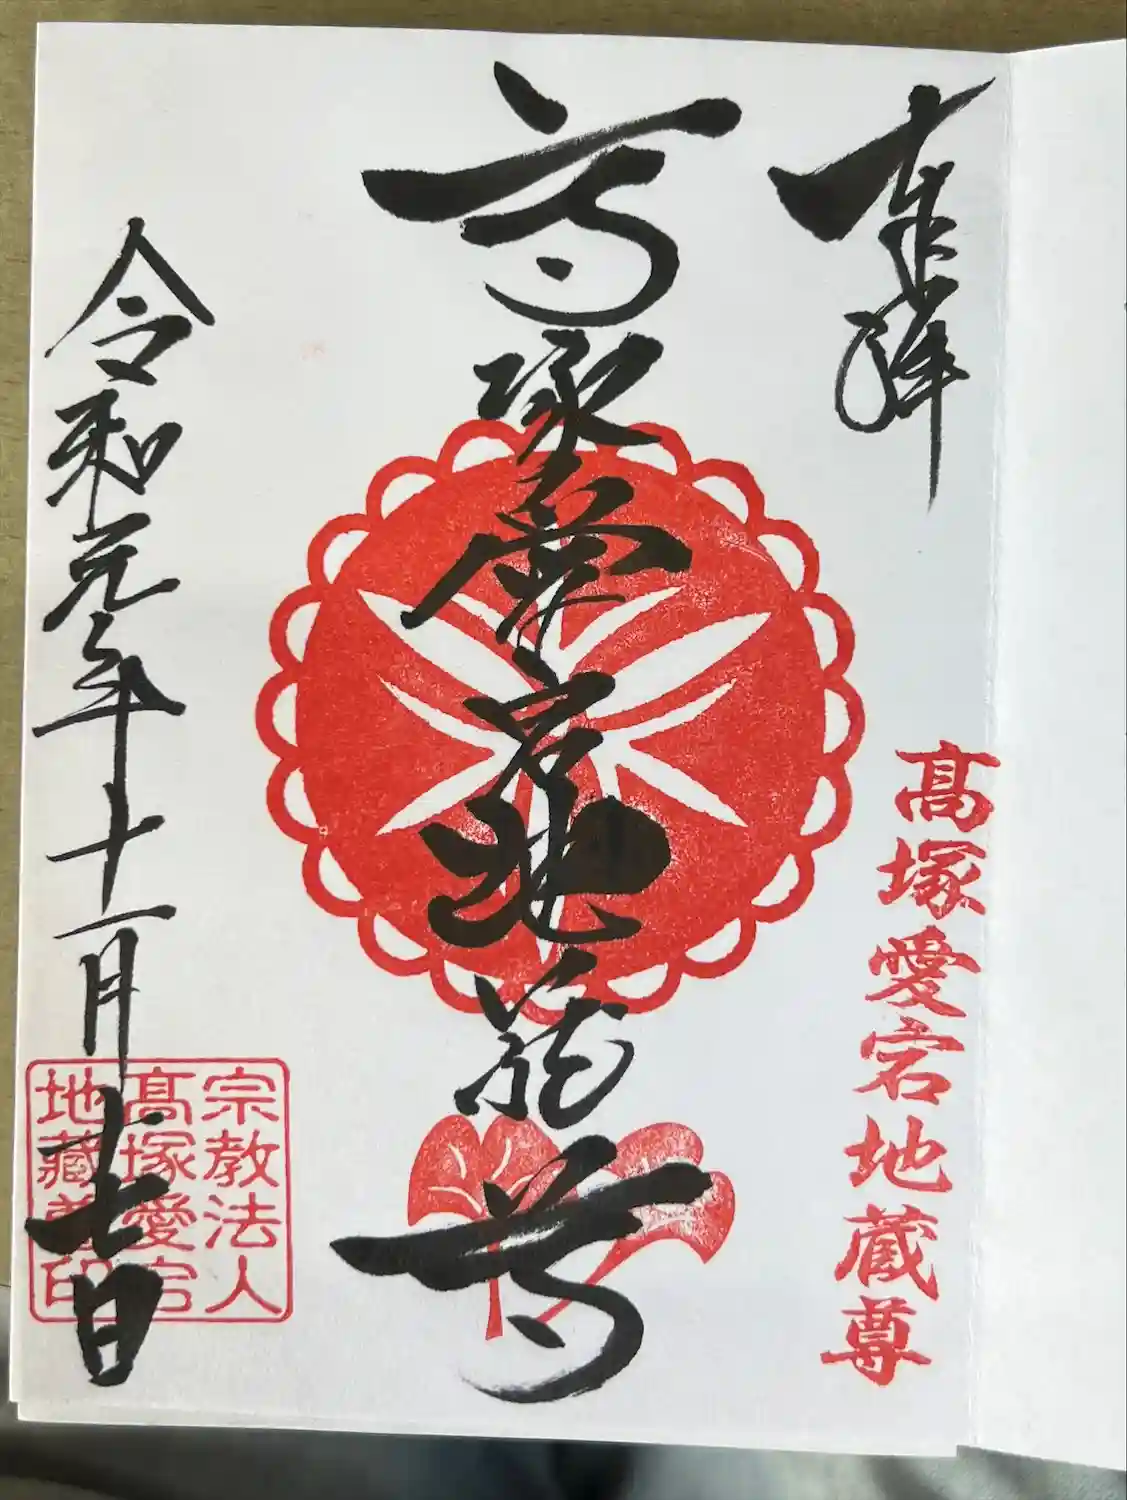 奉拝
髙塚愛宕地蔵尊
高塚愛宕地蔵尊
令和元年十一月十七日
宗教法人
髙塚愛宕
地藏尊印